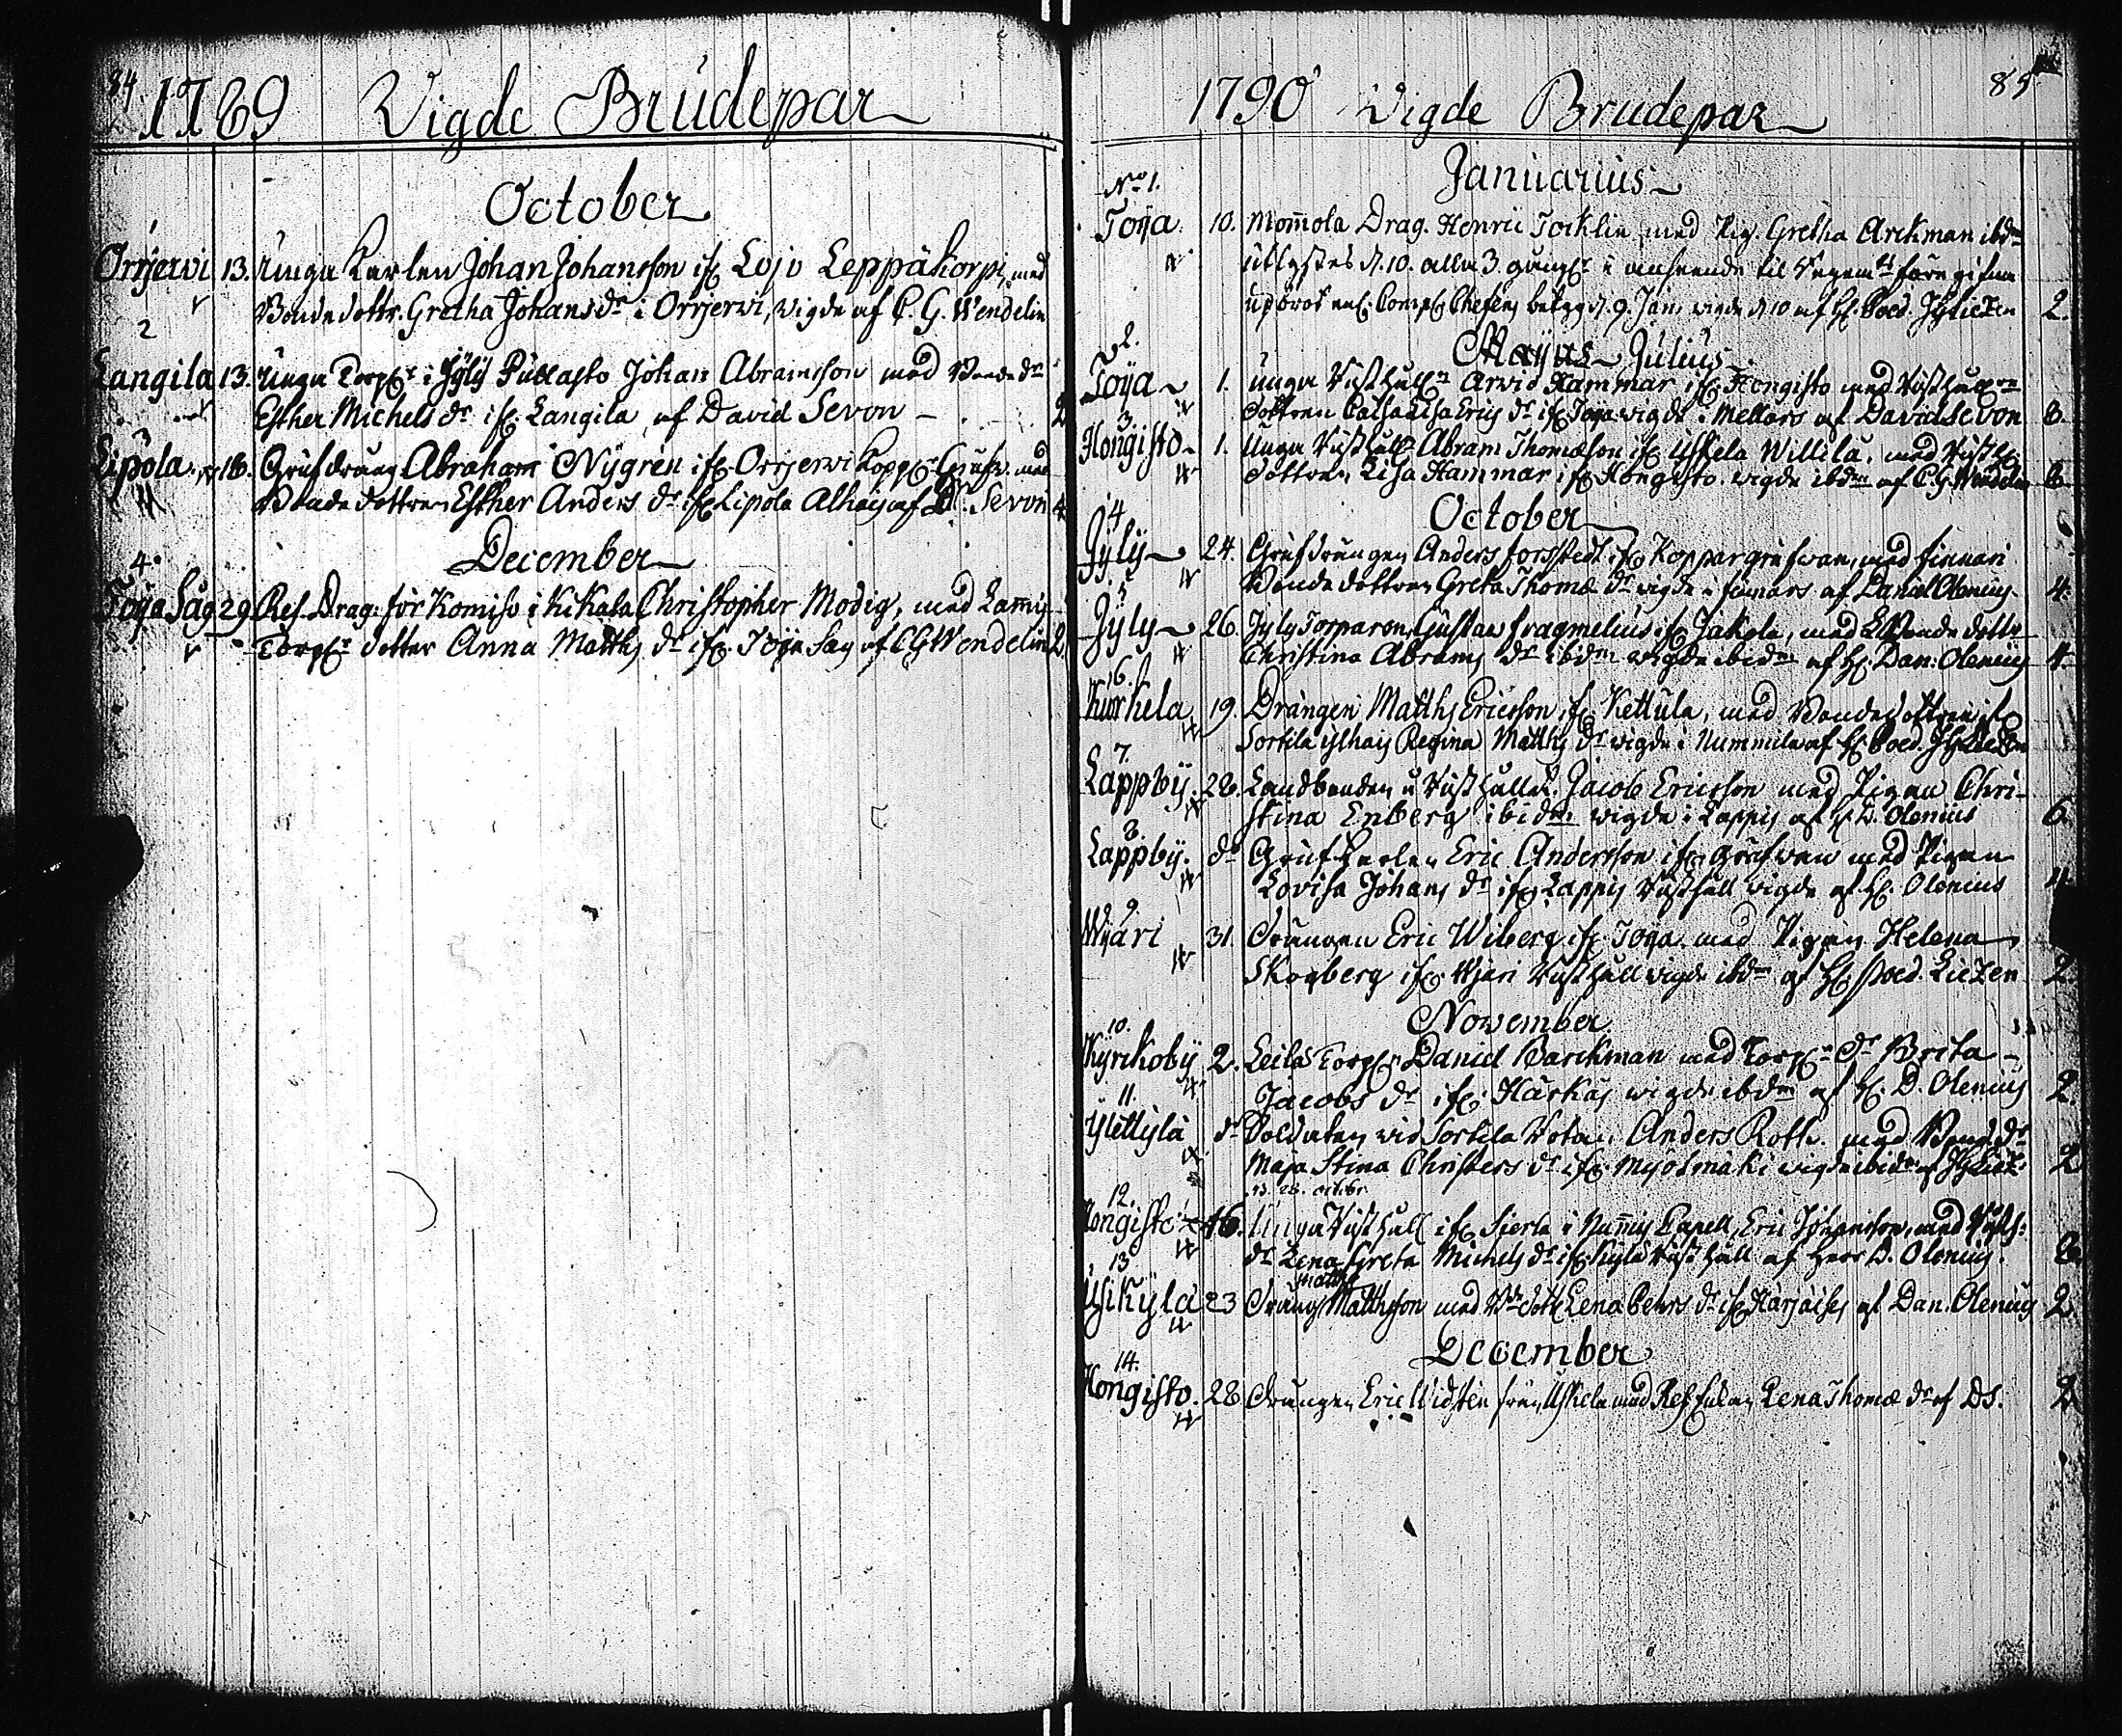 84
1789 Vigde Brudepar
October
1
Orrjerwi 13. Unga Karlen Johan Johansson ifr Lojo Leppäkorpi, med
Bonde dottr. Gretha Johans dr i Orrjerwi, vigde af C. G. Wendelin
2
Langila 13. Unga Torpr i Jyly Johan Abramsson med Bonde dr
Esther Michels dr ifr Langila, af David Sevon – 2
3
Lipola 18. Grufdräng Abraham Nygren ifr Orrjerwi Koppr Grufv. med
Bonde dottren Esther Anders dr ifr Lipola Alhais af D. Sevon 4
December
4.
Toija Såg 29. Res. Drag. för Komiso i Kikala Christopher Modig, med
Torpr dotter Anna Matths dr ifr Toija Såg af CG Wendelin 2.
1790 Vigde Brudepar 85
Januarius
No 1.
Toija 10. Mommola Drag. Henric Tocklin med Pig. Gretha Arckman ibdm
utlystes d. 10. alla 3. gånger i anseende til
Compl Chefens d. 9. Jan. vigde d 10 af H. Poed. 2.
Majus Julius
2.
Toija 1. unga Rusthålln Arvid Hammar ifr Hongisto med Rusthålln
dottren Caisa Lisa Erics dr ifr Toija vigde i Mellars af David Sevon 8.
3.
Hongisto 1. Unga Rusthålln Abram Thomæson ifr Uskela Willilä, med Rusth.
dottren Lisa Hammar ifr Hongisto, vigde ibdm af C G Wendelin 8
October
4
Jyly 24. Grufdrängen Anders Forsstedt ifr Koppargrufwan, med finnari
Bonde dottren Greta Thomæ dr vigde i finnars af Daniel Olenius. 4.
5
Jyly 26. Jyly Torparen Gustaw Fragmelius ifr Jakola, med Bonde dottr
Christina Abrams dr ibidm vigde ibidm af H. Dan: Olenius 4
6.
Kurkela 19. Drängen Matths Ericsson ifr Kettula, med Bonde dottren ifr
Sorkila Regina Matths dr vigde i Nummila af H. Poed.
7.
Lappby. 28. Landbonden å Rusthållet Jacob Ericsson med Pigan Chri-
stina Enberg ibidm vigde i Lappy af H. D. Olenius 6.
8.
Lappby. do Gruf Karlen Eric Andersson ifr Grufwan med Pigan
Lovisa Johans dr ifr Lappy Rusthåll vigde af H. Olenius 4
9
Wiari 31. Drängen Eric Wiberg ifr Toija, med Pigan Helena
Skogberg ifr Wjari Rusthåll vigde ibdm af H. Poed. Lietzen 2
November
10.
Kyrckoby 2. Leilä Torpn Daniel Barckman med Torpr dr Brita –
Jacobs dr ifr Härkäs vigde ibdm af H. D. Olenius 2.
11.
Yletlylä do Soldaten vid Sorkila Rota, Anders Roth. med Bond. dr
Maja Stina Christers dr ifr Myölmäki vigde ibidm af 2
28. octobr
12.
Hongisto 16. Unga Rusthåll ifr Sierla i Nummis Capell, Eric Johansson, med Rusth:
dr Lena Greta Michels dr ifr Kylä Rusthåll af Herr D. Olenius. 8
13
Matths
Usikylä 23 Dräng Matthsson med Bd dottr Lena Petters dr ifr Harjäis af Dan. Olenius 2.
December
14.
Hongisto. 28 Drängen Eric Widsten från Uskela med Lena Thomæ dr af DS. 2